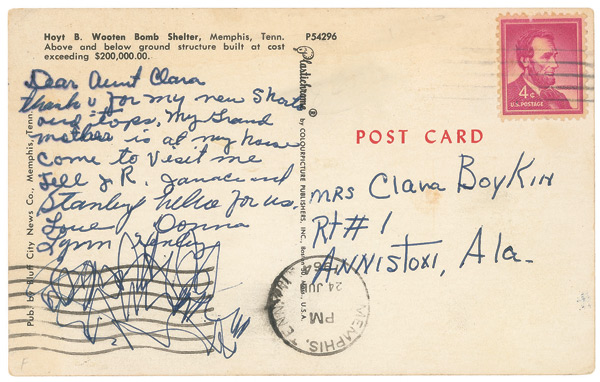 Hoyt B. Wooten Bomb Shelter, Memphis, Tenn.
Above and below ground structure built at cost
exceeding $200,000.00.
P54296
Dear Aunt Clara
thank u for my new Shorts
and tops, My Grand
mother is at my house
come to visit me
Tell J R. and
Stanley hello for us.
Love Donna
Lynn
Pub. by Bluff City News Co., Memphis, Tenn.
Plastichrome ® by COLOURPICTURE PUBLISHERS, INC., U.S.A.
4¢
U.S. POSTAGE
POST CARD
MRS Clara Boykin
Rt #1
ANNISTON, Ala.
MEMPHIS, TENN.
PM
24 JUL